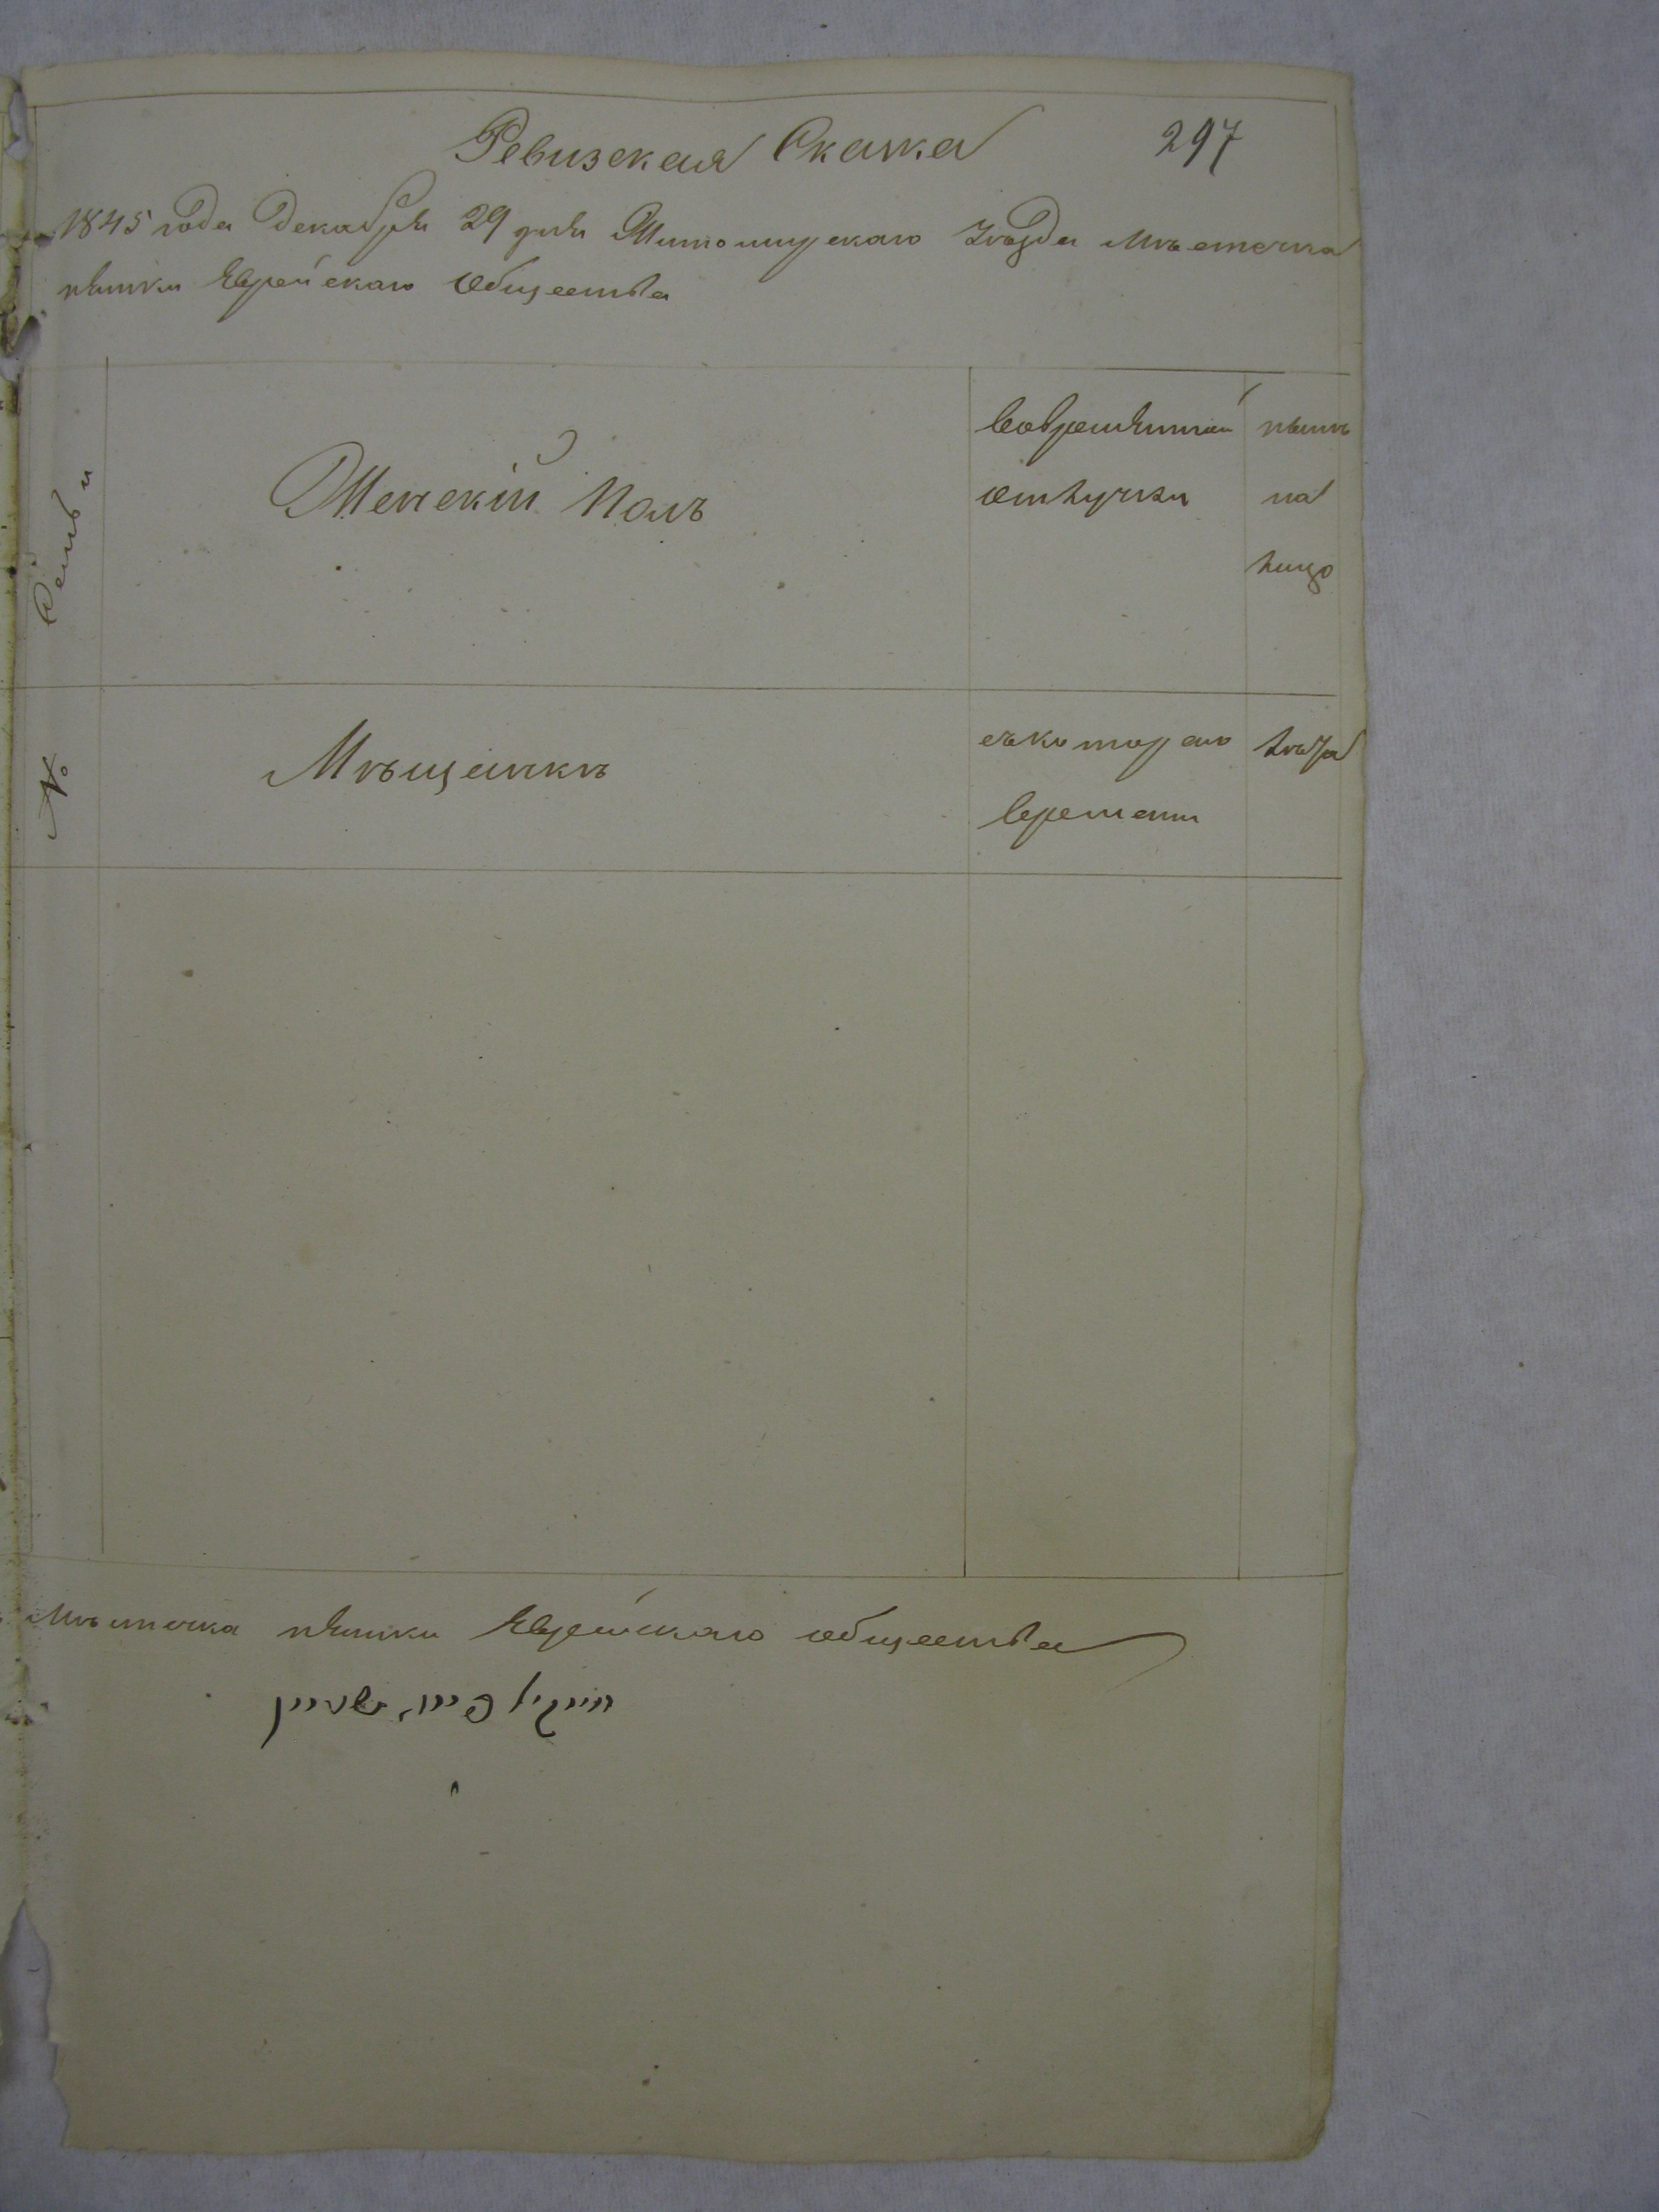 Ревизская Скаска
297
1845 года Декабря 29 дня Житомирскаго уѣзда Мѣстечка
пятки Еврейскаго Общества
№ Семьи
Женский Полъ
вовременной
отлучки
нынѣ
на
лицо
Мѣщанкъ
съкотораго
времени
лѣта
Мѣстечка пятки Еврейскаго общества